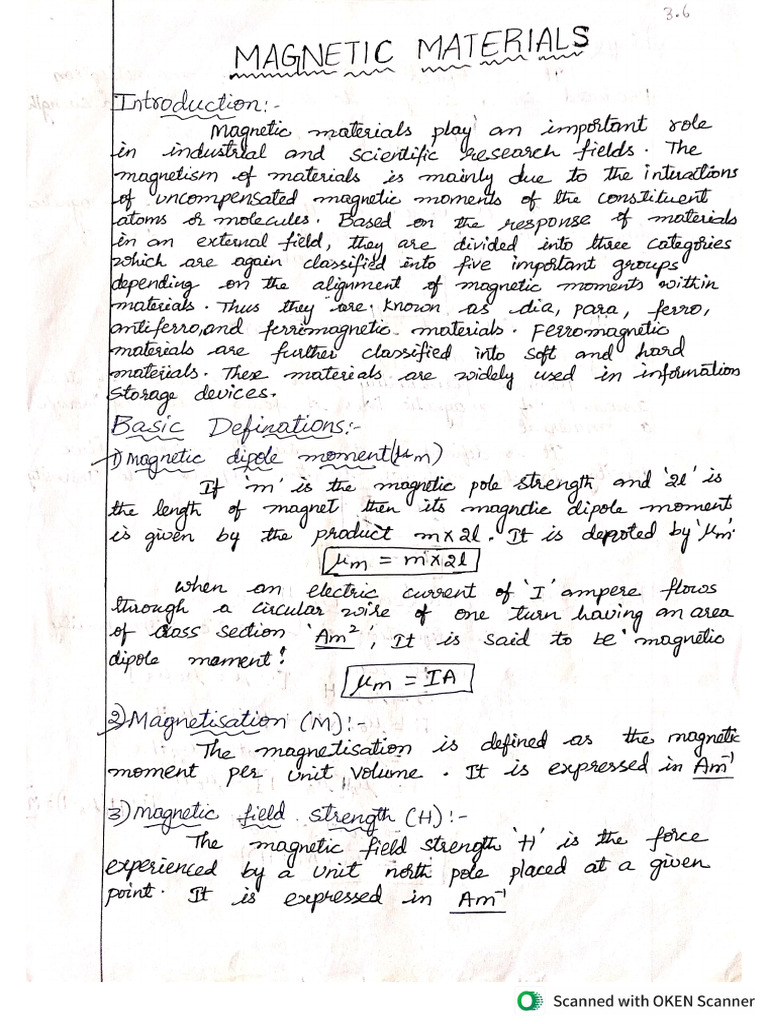 3.6
MAGNETIC MATERIALS
Introduction:-
Magnetic materials play an important role
in industrial and scientific research fields. The
magnetism of materials is mainly due to the interactions
of uncompensated magnetic moments of the constituent
atoms or molecules. Based on the response of materials
in an external field, they are divided into three categories
which are again classified into five important groups
depending on the alignment of magnetic moments within
materials. Thus they are known as dia, para, ferro,
antiferro, and ferrimagnetic materials. Ferromagnetic
materials are further classified into soft and hard
materials. These materials are widely used in information
storage devices.
Basic Definations:-
1) Magnetic dipole moment (μm)
If 'm' is the magnetic pole strength and '2l' is
the length of magnet then its magnetic dipole moment
is given by the product m×2l. It is denoted by 'μm'
μm = m×2l
when an electric current of 'I' ampere flows
through a circular wire of one turn having an area
of cross section 'Am²', It is said to be 'magnetic
dipole moment'.
μm = IA
2) Magnetisation (M):-
The magnetisation is defined as the magnetic
moment per unit volume. It is expressed in Am⁻¹
3) Magnetic field strength (H):-
The magnetic field strength 'H' is the force
experienced by a unit north pole placed at a given
point. It is expressed in Am⁻¹
Scanned with OKEN Scanner